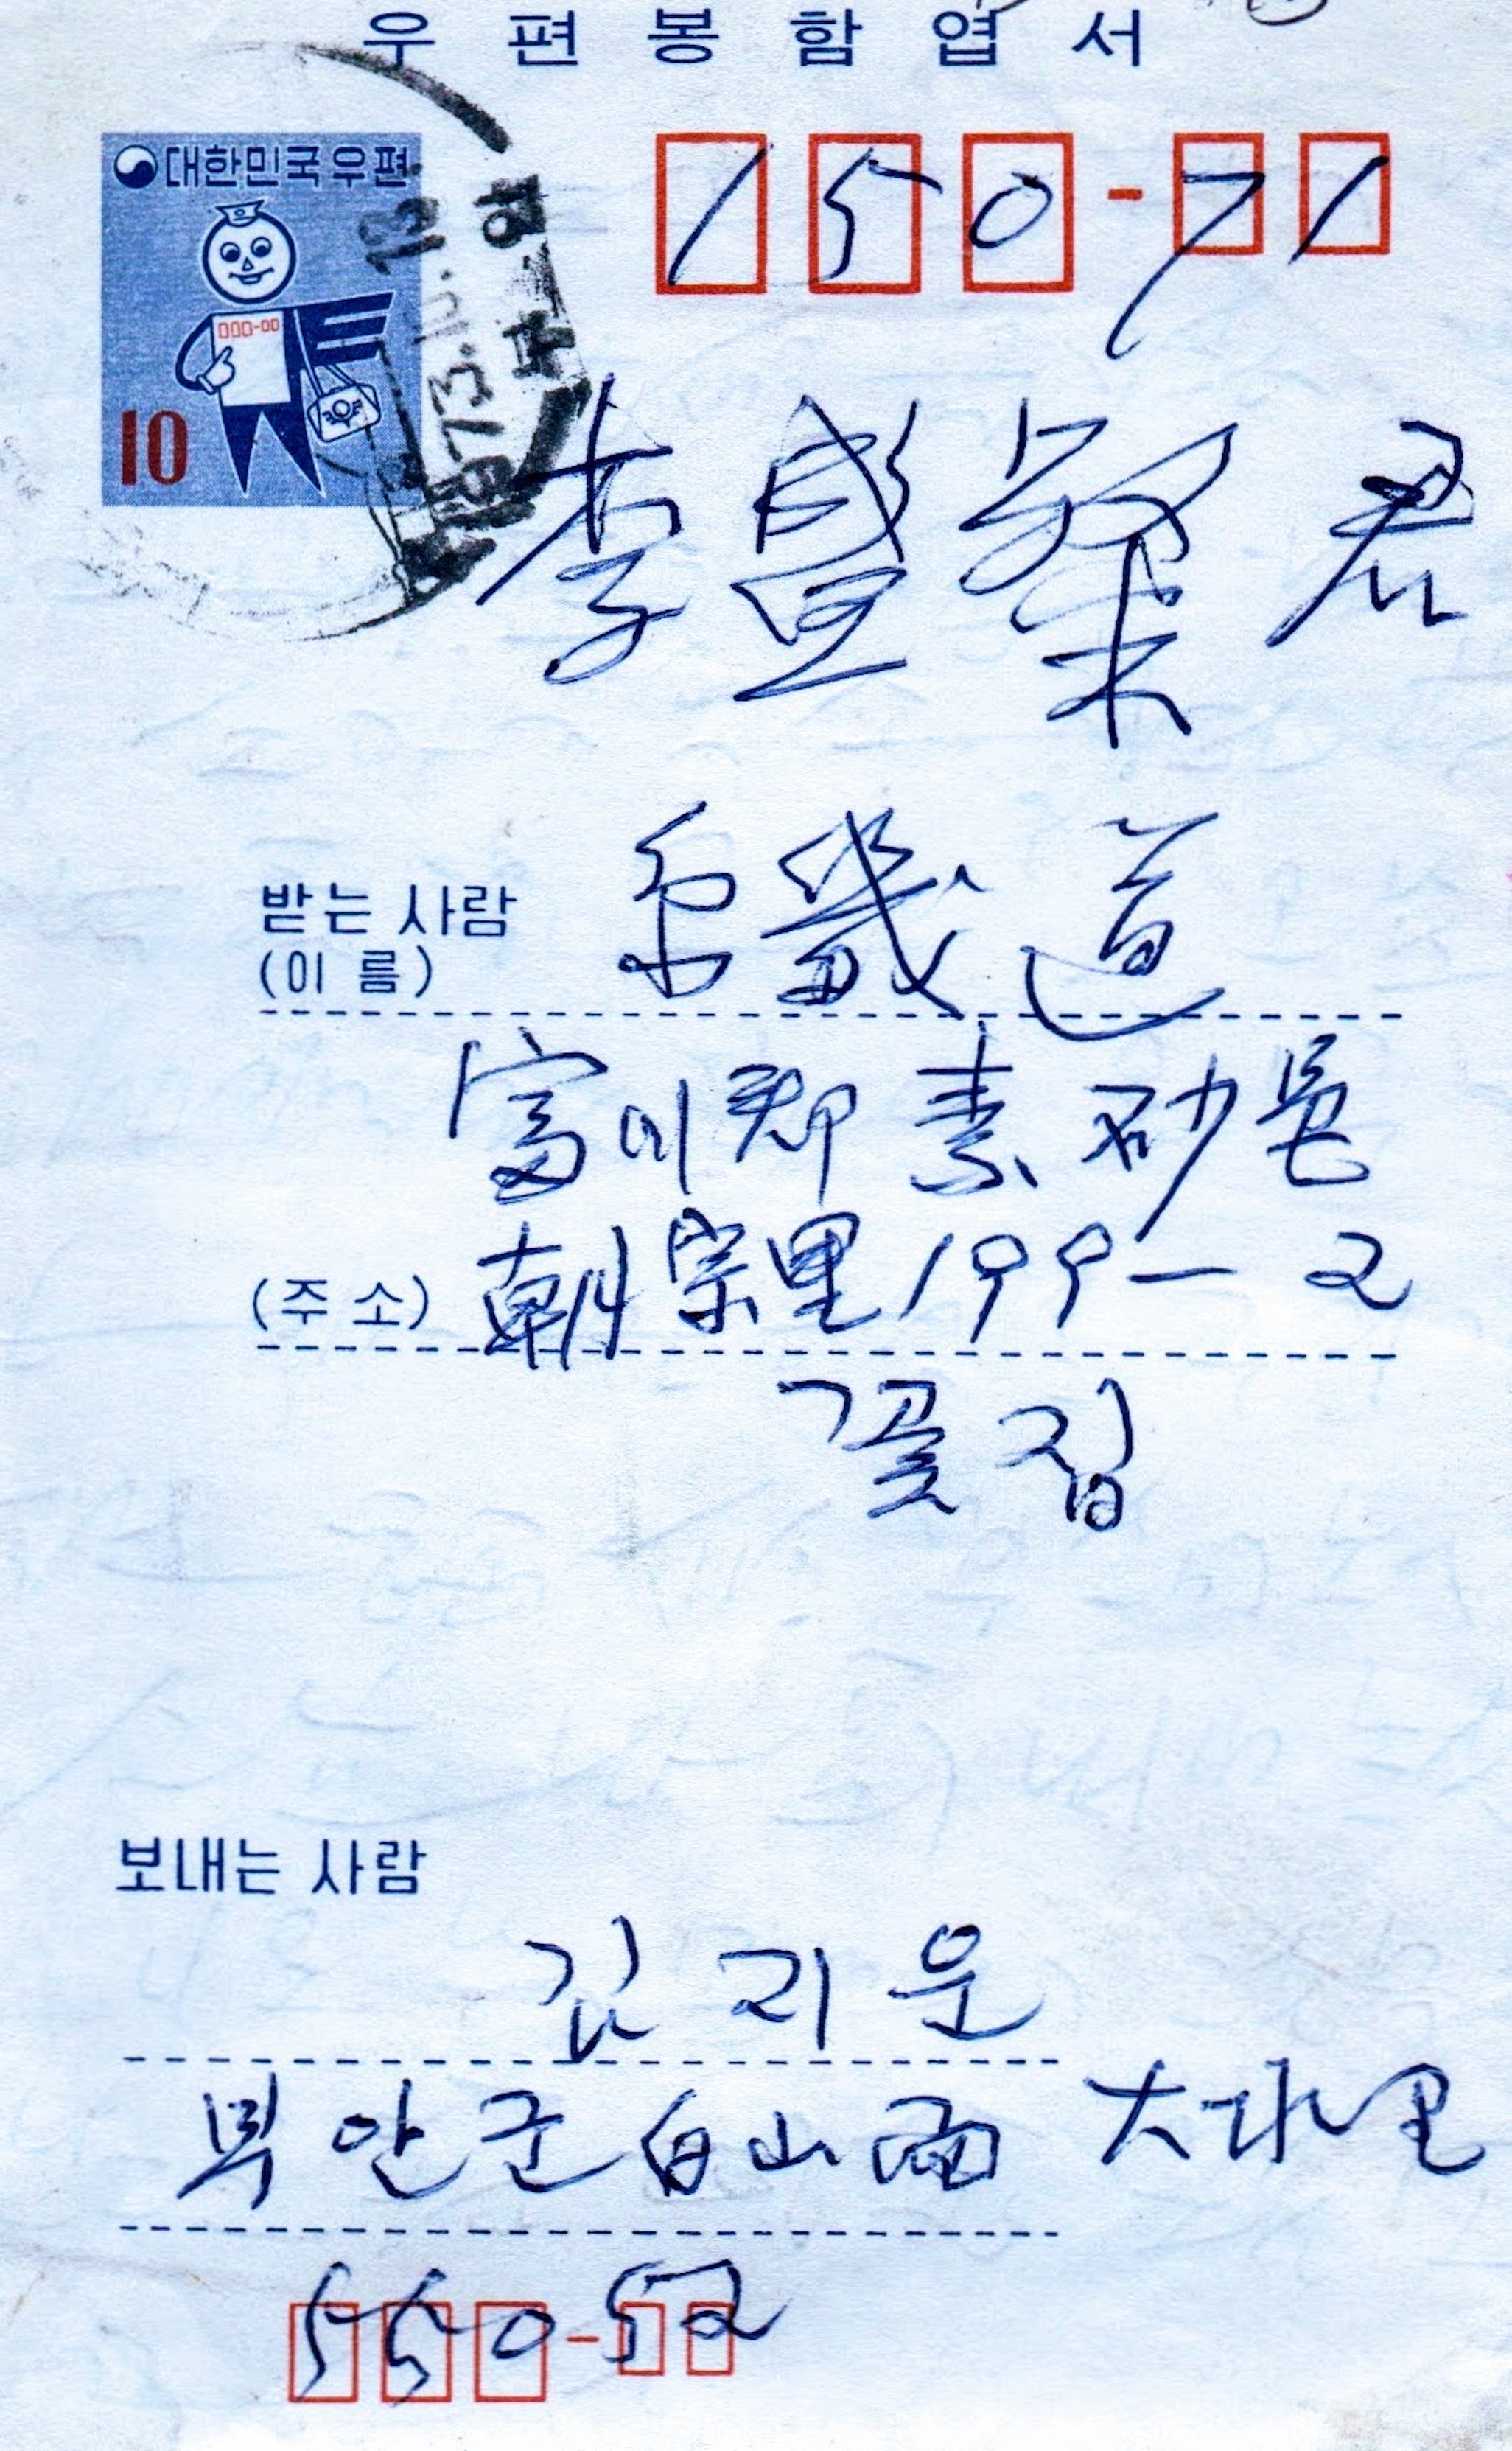 우편봉함엽서
대한민국우편
000-00
10
150-71
李盛粲 君
받는 사람
(이 름)
京畿道
富川郡 素砂邑
(주 소)
朝宗里 199-2
꽃집
보내는 사람
김지운
부안군 白山面 大水里
550-52